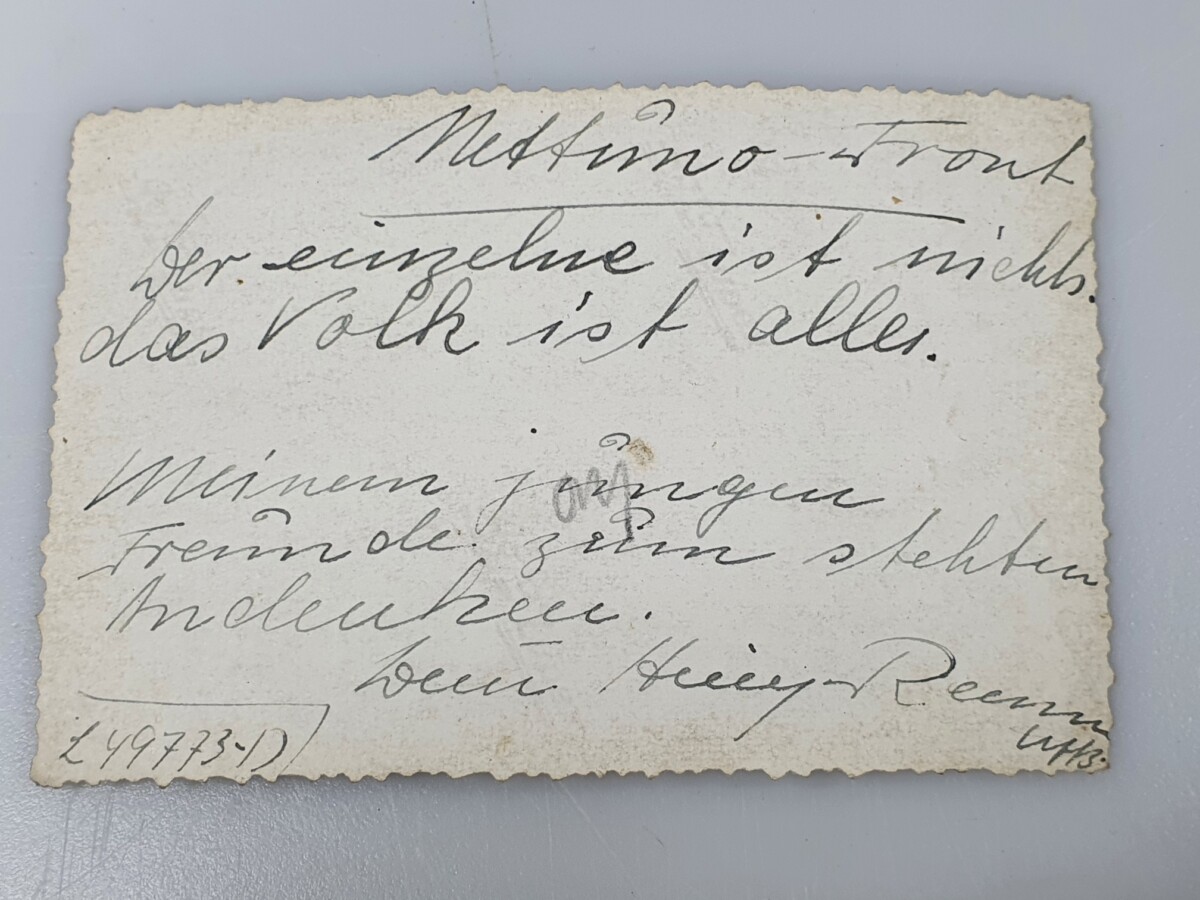 Nettuno-Front
Der einzelne ist nichts.
das Volk ist alles.
Meinem jungen
Freunde zum stehten
Andenken.
Dein
L 49773-D
Uffz.